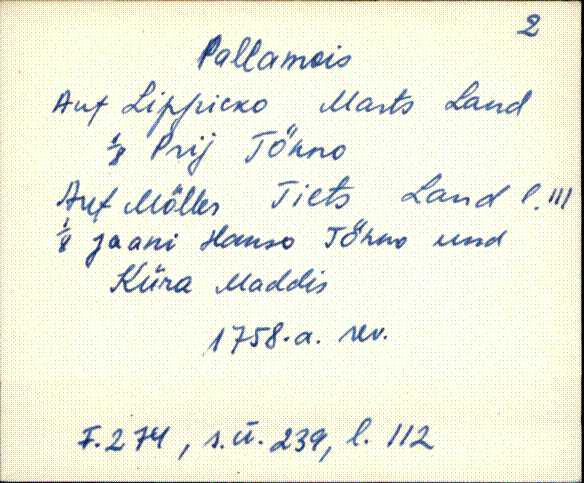 2
Pallamois
Auf Lippicko Marts Land
1/8 Prij Töhno
Auf Möller Tiets Land l. 111
1/8 Jaani Hanso Töhno und
Küra Maddis
1758.a. rev.
F. 274, s.ü. 239, l. 112